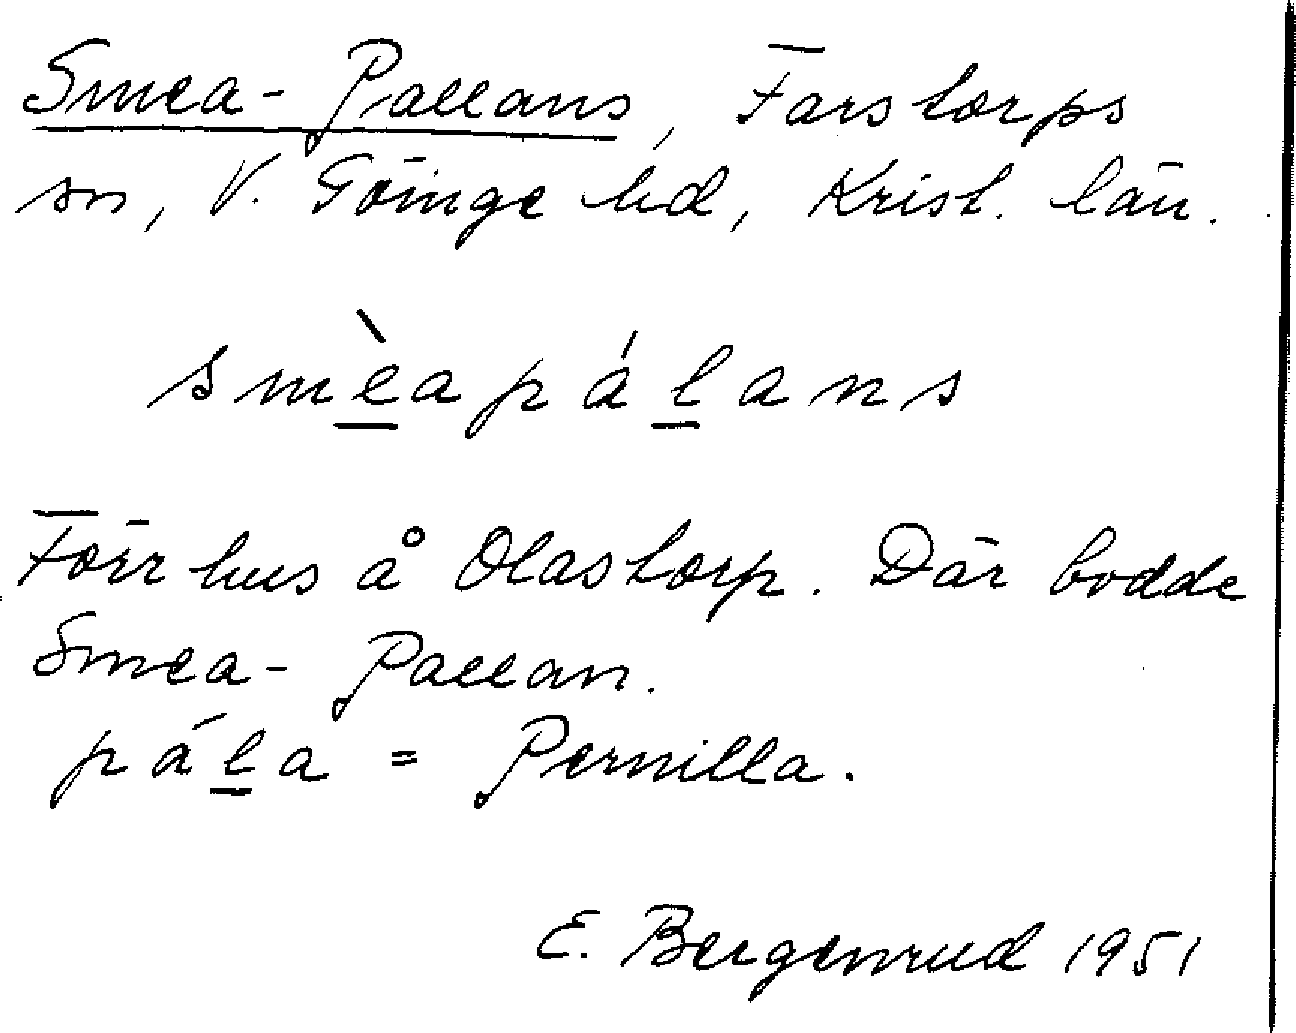 Smea-Pallans, Farstorps
sn, V. Göinge hd, Krist. län.
smèapálans
Förr hus å Olastorp. Där bodde
Smea-Pallan.
pála = Pernilla.
E. Bergenrud 1951